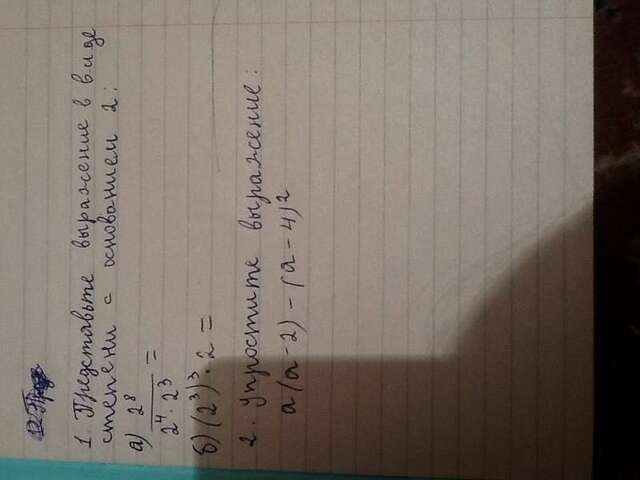 1. Представьте выражение в виде
степени с основанием 2:
а) 2⁸
2⁴ · 2³ =
б) (2³)³ · 2 =
2. Упростите выражение:
a(a-2)-(a-4)²